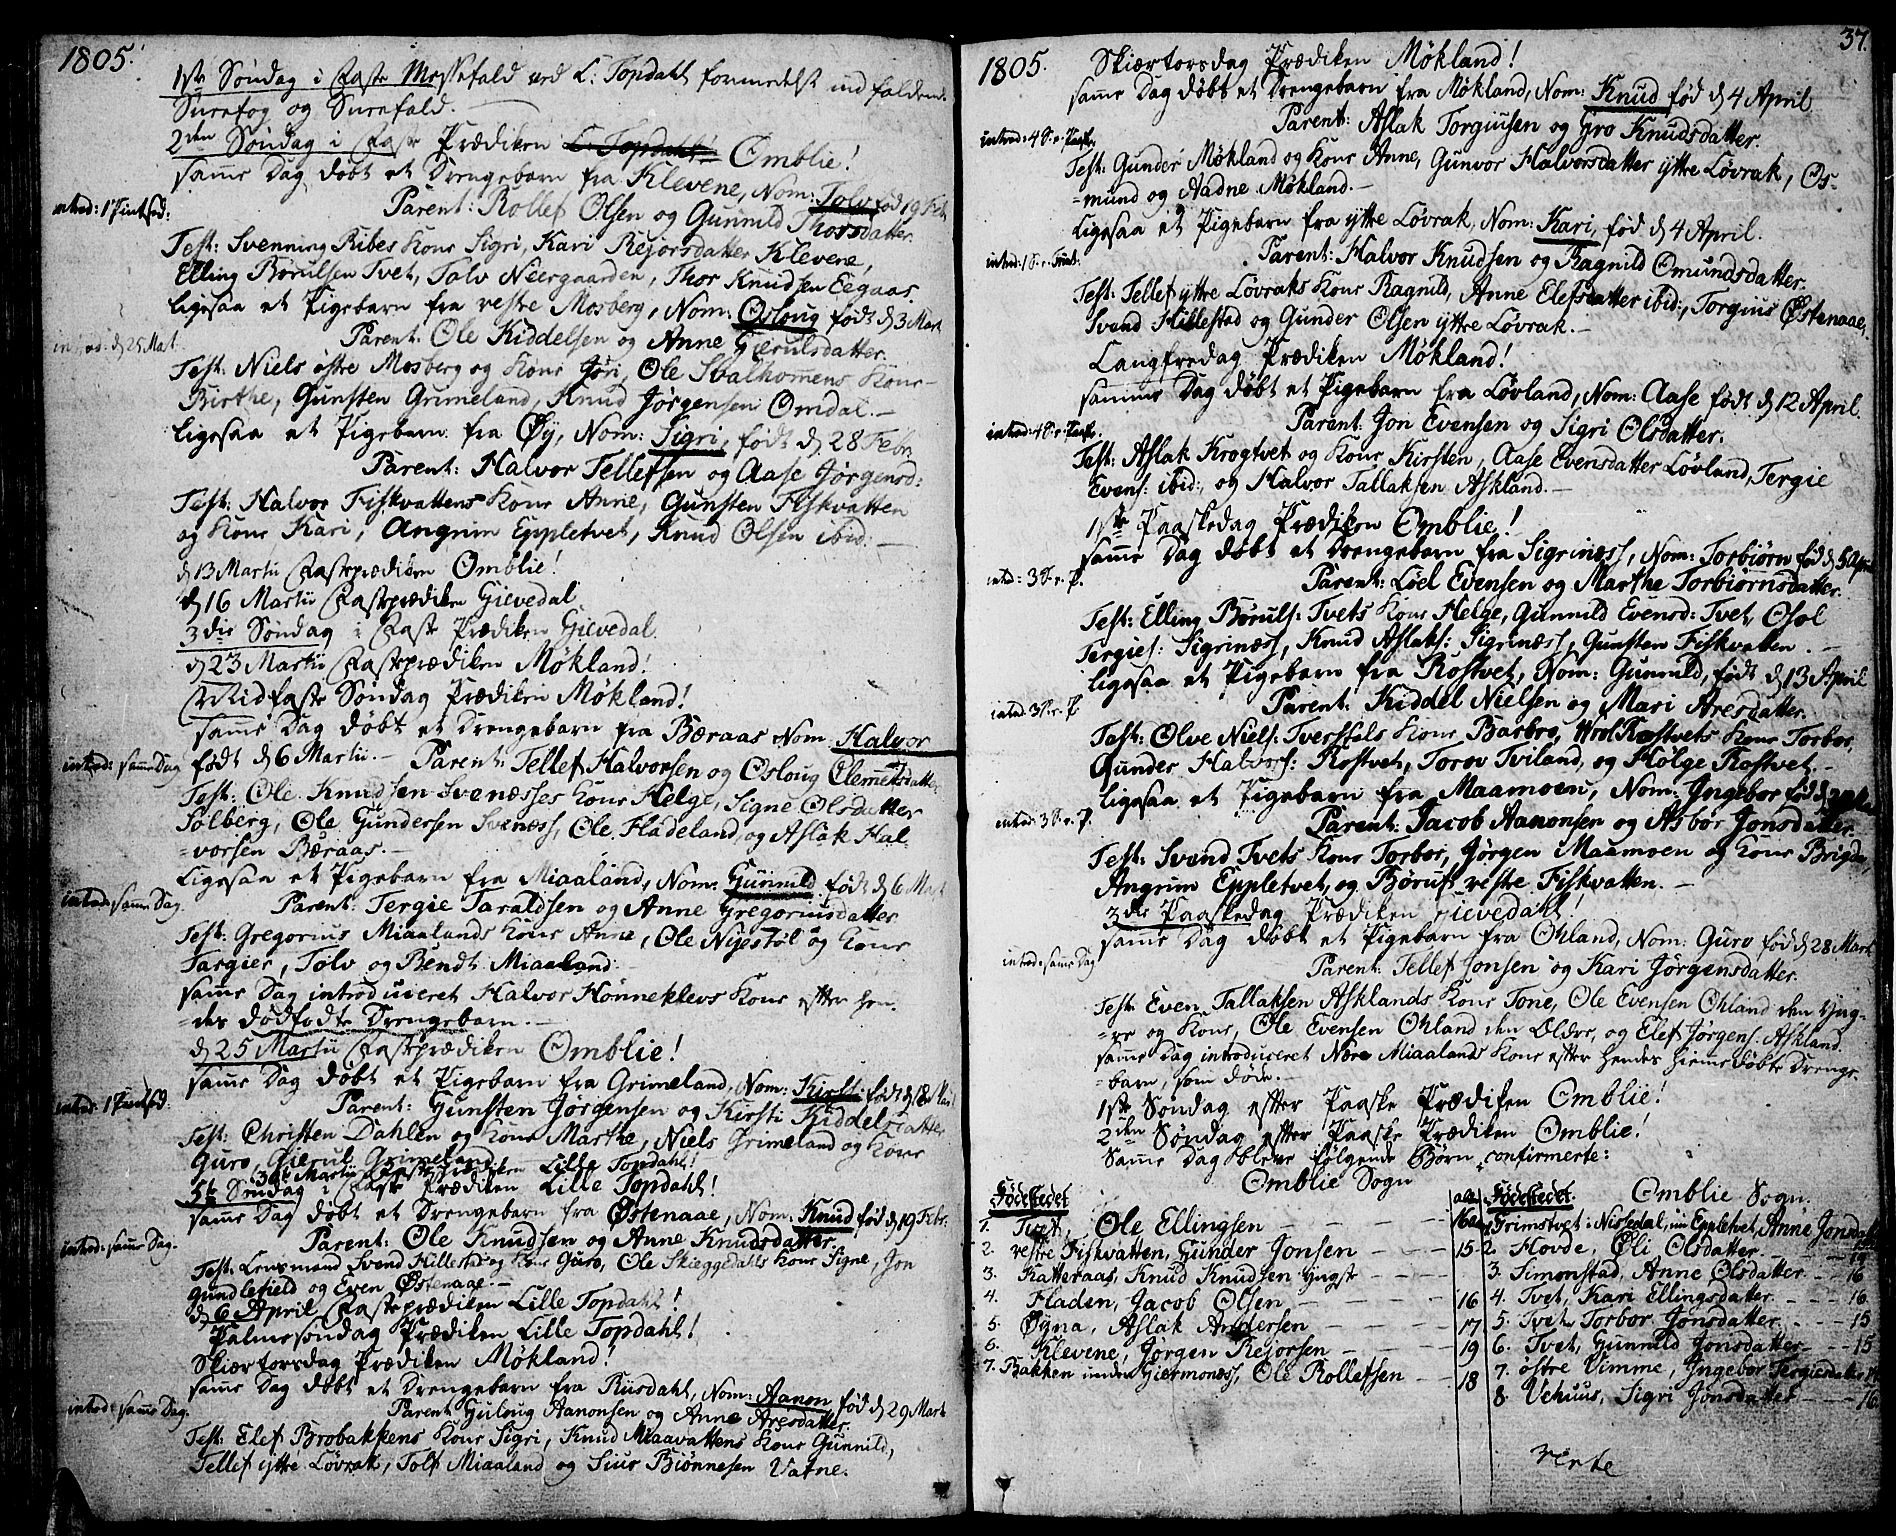 1805.
1ste Søndag i Faste Messefald ved L: Topdahl formedelst ind falden
Sneefog og Sneefald.
2den Søndag i Faste Prædiken L: Topdahl Omblie!
samme Dag døbt et Drengebarn fra Klevene, Nom: Tolv fød 19 Feb
introd: 1 Pintsed:
Parent: Rollef Olsen og Gunnild Thorsdatter.
Test: Svenning Ribes Kone Sigri, Kari Rejorsdatter Klevene,
Elling Børulsen Tvet, Tolv Neergaarden, Thor Knudsen Eegaas.
ligesaa et Pigebarn fra vestre Mosberg, Nom: Osloug født d 3 Mart
introd: d 25 Mart.
Parent: Ole Kiddelsen og Anne Gierulsdatter.
Test: Niels østre Mosberg og Kone Jøri, Ole Svalhomens Kone
Birthe, Gunsten Grimeland, Knud Jørgensen Omdal.
ligesaa et Pigebarn fra Øy, Nom: Sigri, født d 28 Febr.
Parent: Halvor Tellefsen og Aase Jørgensd:
Test: Halvor Fiskvattens Kone Anne, Gunsten Fiskvatten
og Kone Kari, Angrim Eppletvet, Knud Olsen ibid:
d 13 Martii Fasteprædiken Omblie!
d 16 Martii Fasteprædiken Gievedal
3die Søndag i Faste Prædiken Gievedal.
d 23 Martii Fasteprædiken Møkland!
Midfaste Søndag Prædiken Møkland!
samme Dag døbt et Drengebarn fra Bæraas Nom: Halvor
introd: samme Dag
født d 6 Martii. Parent: Tellef Halvorsen og Osloug Clemetsdatter
Test: Ole Knudsen Svenæsses Kone Helge, Signe Olsdatter
Solberg, Ole Gundersen Svenæss, Ole Fladeland, og Aslak Hal
=vorsen Bæraas.
ligesaa et Pigebarn fra Miaaland, Nom: Gunnild født d 6 Mart
introd: samme Dag.
Parent: Tergie Taraldsen og Anne Gregoriusdatter
Test: Gregorius Miaalands Kone Anne, Ole Nyestøl og Kone
Targier, Tolv og Bendt Miaaland.
samme Dag introduceret Halvor Hønneklevs Kone efter hen
=des dødfødte Drengebarn.
d 25 Martii Fasteprædiken Omblie!
samme Dag døbt et Pigebarn fra Grimeland, Nom: Kirsti født d 18 Mart
introd: 1 Pintsed.
Parent: Gunsten Jørgensen og Kirsti Kiddelsdatter
Test: Christen Dahlen og Kone Marthe, Niels Grimeland og Kone
Guro, Gierul Grimeland
30te Martii Fasteprædiken Lille Topdahl!
5te Søndag i Faste Prædiken Lille Topdahl!
samme Dag døbt et Drengebarn fra Østenaae, Nom: Knud fød d 19 Febr.
introd: samme Dag.
Parent: Ole Knudsen og Anne Knudsdatter
Test: Lensmand Svend Hillestad og Kone Guro, Ole Skieggedahls Kone Signe, Jon
Gundlefield og Even Østenaae.
d 6 April Fasteprædiken Lille Topdahl!
Palmesøndag Prædiken Lille Topdahl!
Skiærtorsdag Prædiken Møkland!
samme Dag døbt et Drengebarn fra Riisdahl, Nom: Aanon fød d 29 Mart
introd: samme Dag.
Parent Guloug Aanonsen og Anne Aresdatter
Test: Elef Brobakkens Kone Sigri, Knud Miaavattens Kone Gunnild,
Tellef yttre Løvrak, Tolf Miaaland og Siur Biønnesen Vatne.
37.
1805. Skiærtorsdag Prædiken Møkland!
samme Dag døbt et Drengebarn fra Møkland, Nom: Knud fød d 4 April
introd: 4 S. e. Paaske
Parent: Aslak Torgiusen og Gro Knudsdatter.
Test: Gunder Møkland og Kone Anne, Gunvor Halvorsdatter yttre Løvrak, Os=
=mund og Aadne Møkland.
ligesaa et Pigebarn fra yttre Løvrak, Nom: Kari, fød d 4 April.
introd: 1 S. e. Trinit.
Parent: Halvor Knudsen og Ragnild Omundsdatter.
Test: Tellef yttre Løvraks Kone Ragnild, Anne Elefsdatter ibid:, Torgius Østenaae,
Svend Hillestad og Gunder Olsen yttre Løvrak.
Langfredag Prædiken Møkland!
samme Dag døbt et Pigebarn fra Løvland, Nom: Aase født d 12 April.
introd: 4 S. e. Paaske.
Parent: Jon Evensen og Sigri Olsdatter.
Test: Aslak Krogtvet og Kone Kirsten, Aase Evensdatter Løvland, Tergie
Evens: ibid:, og Halvor Tallaksen Askland.
1ste Paaskedag Prædiken Omblie!
samme Dag døbt et Drengebarn fra Sigrinæss, Nom: Torbiørn fød d 5 April
introd: 3 S. e. P.
Parent: Løel Evensen og Marthe Torbiørnsdatter.
Test: Elling Børuls: Tvets Kone Helge, Gunnild Evensd: Tvet, Osol
Tergies: Sigrinæss, Knud Aslaks: Sigrinæss, Gunsten Fiskvatten.
ligesaa et Pigebarn fra Rostvet, Nom: Gunnild, født d 13 April
introd: 3 S. e. P
Parent: Kiddel Nielsen og Mari Aresdatter.
Test: Olve Niels: Tverstøls Kone Barbro, Rostvets Kone Torbor,
Gunder Halvors: Rostvet, Torov Tviland, og Helge Rostvet.
ligesaa et Pigebarn fra Maamoen, Nom: Ingebor fød d
introd: 3 S. e. P.
Parent: Jacob Aanonsen og Asbor Jonsdatter.
Test: Svend Tvets Kone Torbor, Jørgen Maamoen og Kone Brigda,
Angrim Eppletvet, og Børuf vestre Fiskvatten.
3die Paaskedag Prædiken Gievedahl!
samme Dag døbt et Pigebarn fra Ohland, Nom: Guro fød d 28 Mart
introd: samme Dag
Parent: Tellef Jonsen og Kari Jørgensdatter.
Test: Even Tallaksen Asklands Kone Tone, Ole Evensen Ohland den Yng=
=re og Kone, Ole Evensen Ohland den Ældre, og Elef Jørgens: Askland.
samme Dag introduceret Nære Miaalands Kone efter hendes hiemmedøbte Drenge
=barn, som døde.
1ste Søndag efter Paaske Prædiken Omblie!
2den Søndag efter Paaske Prædiken Omblie!
Samme Dag bleve følgende Børn confirmerte:
Omblie Sogn
Fødestedet
1. Tvet, Ole Ellingsen 16
2. vestre Fiskvatten, Gunder Jonsen 15
3. Katteraas, Knud Knudsen yngst
4. Fladen, Jacob Olsen 16
5. Øyna, Aslak Andersen 17
6. Klevene, Jørgen Rejorsen 19
7. Bakken under Giermonæss, Ole Rollefsen 18
Fødestedet. Omblie Sogn.
1. Grimstvet i Nissedal, nu Eppletvet, Anne Jonsdatter
2. Hovde, Øli Olsdatter 19
3. Simonstad, Anne Olsdatter 16
4. Tvet, Kari Ellingsdatter 16
5. Tvet, Torbor Jonsdatter 15
6. Tvet, Gunnild Jonsdatter 15
7. østre Vimme, Ingebor Tergiesdatter
8 Vehuus, Sigri Jonsdatter 16
verte